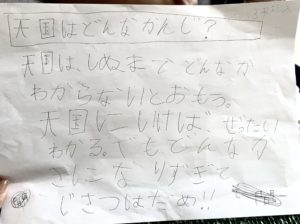 天国はどんなかんじ?
天国は、しぬまでどんなか
わからないとおもう。
天国にいけば、ぜったい
わかる。でもどんなか
きになりすぎて
じさつはだめ!!